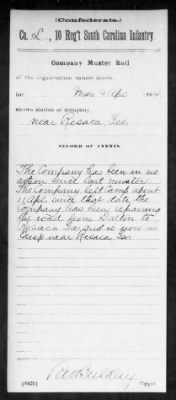 (Confederate.)
Co. L, 10 Reg't South Carolina Infantry.
Company Muster Roll
of the organization named above,
for Mar & Apl, 1864.
Station of company,
near Resaca, Geo.
RECORD OF EVENTS.
The Company has been in no
action since last muster.
The company left Camp about
11 Apl since that date the
Company has been repairing
the road from Dalton to
Resaca Ga and is now in
Camp near Resaca Ga.
(642i)
Copyist.